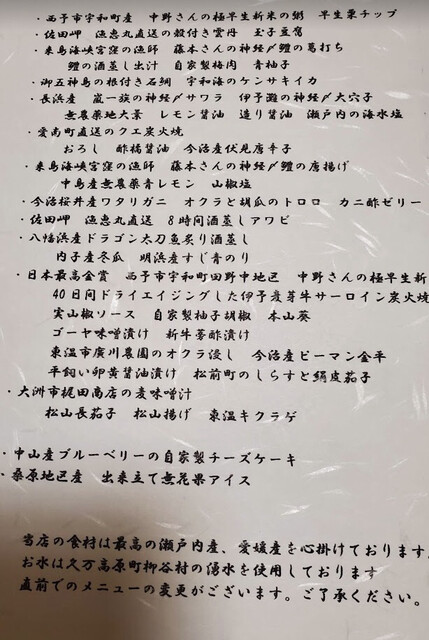 ・西予市宇和町産 中野さんの極早生新米の粥 早生栗チップ
・佐田岬 漁恵丸直送の殻付き雲丹 玉子豆腐
・来島海峡宮窪の漁師 藤本さんの神経〆鱧の葛打ち
鱧の酒蒸し出汁 自家製梅肉 青柚子
・御五神島の根付き石鯛 宇和海のケンサキイカ
・長浜産 嵐一族の神経〆サワラ 伊予灘の神経〆大穴子
無農薬地大葉 レモン醤油 造り醤油 瀬戸内の海水塩
・愛南町直送のクエ炭火焼
おろし 酢橘醤油 今治産伏見唐辛子
・来島海峡宮窪の漁師 藤本さんの神経〆鱧の唐揚げ
中島産無農薬青レモン 山椒塩
・今治桜井産ワタリガニ オクラと胡瓜のトロロ カニ酢ゼリー
・佐田岬 漁恵丸直送 8時間酒蒸しアワビ
・八幡浜産ドラゴン太刀魚炙り酒蒸し
内子産冬瓜 明浜産すじ青のり
・日本最高金賞 西予市宇和町田野中地区 中野さんの極早生新
40日間ドライエイジングした伊予産芽牛サーロイン炭火焼
実山椒ソース 自家製柚子胡椒 本山葵
ゴーヤ味噌漬け 新牛蒡酢漬け
東温市廣川農園のオクラ浸し 今治産ピーマン金平
平飼い卵黄醤油漬け 松前町のしらすと絹皮茄子
・大洲市梶田商店の麦味噌汁
松山長茄子 松山揚げ 東温キクラゲ
・中山産ブルーベリーの自家製チーズケーキ
・桑原地区産 出来立て無花果アイス
当店の食材は最高の瀬戸内産、愛媛産を心掛けております
お水は久万高原町柳谷村の湧水を使用しております
直前でのメニューの変更がございます。ご了承ください。